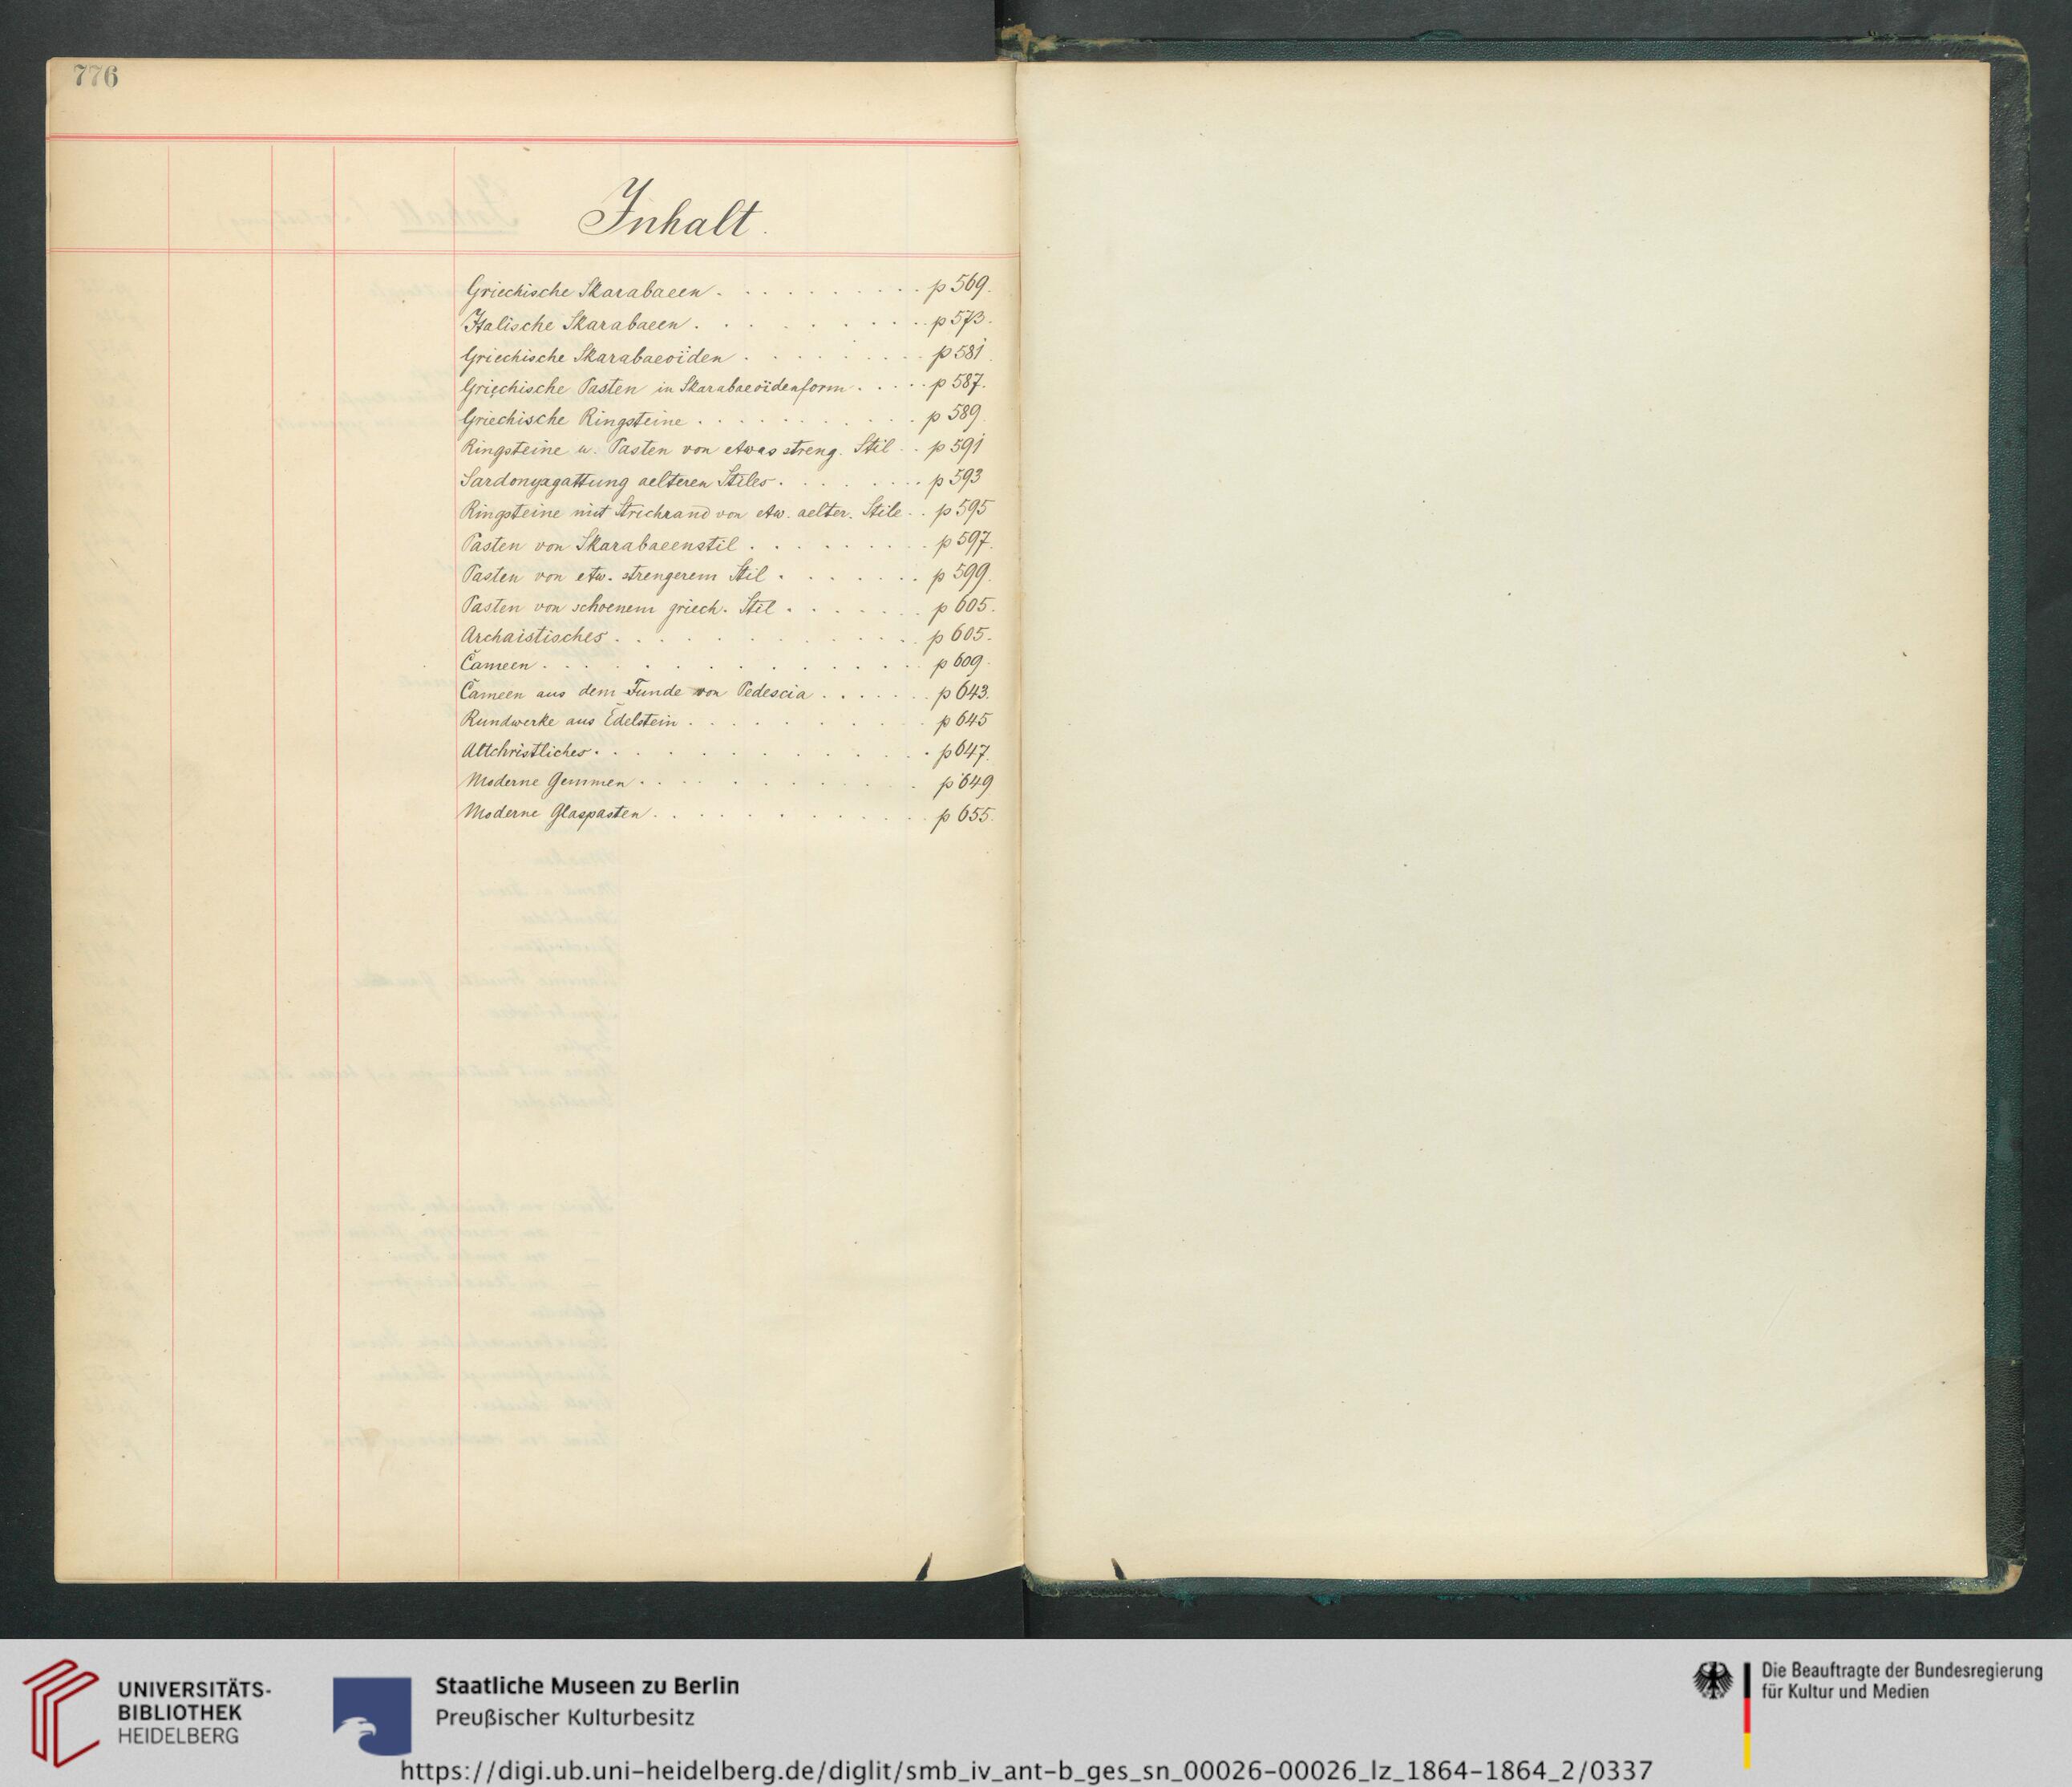 776
Inhalt.
Griechische Skarabaeen . . . . . . . . . p 569.
Italische Skarabaeen . . . . . . . . . p 573.
Griechische Skarabaeoïden . . . . . . . . p 581.
Griechische Pasten in Skarabaeoïdenform . . . . . p 587.
Griechische Ringsteine . . . . . . . . . p 589.
Ringsteine u. Pasten von etwas streng. Stil . . p 591
Sardonyxgattung aelteren Stiles . . . . . . . p 593
Ringsteine mit Strichrand von etw. aelter. Stile . . p 595
Pasten von Skarabaeenstil . . . . . . . . p 597.
Pasten von etw. strengerem Stil . . . . . . . p 599.
Pasten von schoenem griech. Stil . . . . . . . p 605.
Archaistisches . . . . . . . . . . . p 605.
Cameen . . . . . . . . . . . . p 609.
Cameen aus dem Funde von Pedescia . . . . . . p 643.
Rundwerke aus Edelstein . . . . . . . . . p 645
Altchristliches . . . . . . . . . . . p 647.
Moderne Gemmen . . . . . . . . . . p 649
Moderne Glaspasten . . . . . . . . . . p 655.
UNIVERSITÄTS-
BIBLIOTHEK
HEIDELBERG
Staatliche Museen zu Berlin
Preußischer Kulturbesitz
Die Beauftragte der Bundesregierung
für Kultur und Medien
https://digi.ub.uni-heidelberg.de/diglit/smb_iv_ant-b_ges_sn_00026-00026_lz_1864-1864_2/0337